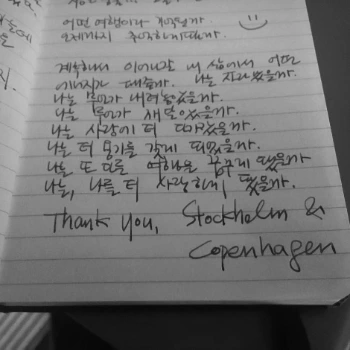 어떤 여행이라 기억될까.
오래까지 추억하게될까.
계속해서 이어나갈 내 삶에서 어떤
에너지가 돼줄까. 나는 자라났을까.
나는 무언가 내려놓았을까.
나는 무언가 깨달았을까.
나는 사랑에 더
나는 더 용기를 갖게 되었을까.
나는 또 다른 여행을 꿈꾸게 됐을까
나는, 나를 더 사랑하게 됐을까.
Thank you, Stockholm &
Copenhagen